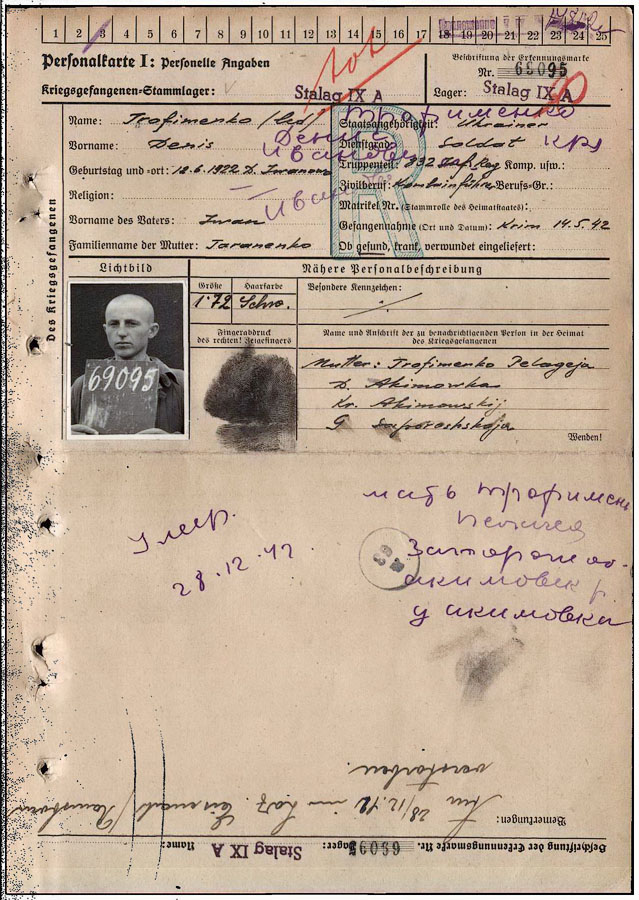 1 2 3 4 5 6 7 8 9 10 11 12 13 14 15 16 17 18 19 20 21 22 23 24 25
Personalkarte I: Personelle Angaben
Kriegsgefangenen-Stammlager: Stalag IX A
tot
Beschriftung der Erkennungsmarke
Nr. 69095
Lager: Stalag IX A
Des Kriegsgefangenen
Name: Trofimenko
Трофименко
Vorname: Denis
Денис
Иванович
Geburtstag und -ort: 12.6.1922 D. Iwanowka
Religion:
Vorname des Vaters: Iwan
Иван
Familienname der Mutter: Taranenko
Staatsangehörigkeit: Ukrainer
Dienstgrad: Soldat
Truppenteil: Komp. usw.:
Zivilberuf: Kombinführer Berufs-Gr.:
Matrikel Nr. (Stammrolle des Heimatstaates):
Gefangennahme (Ort und Datum): Krim 14.5.42
Ob gesund, krank, verwundet eingeliefert:
R
Lichtbild
69095
Nähere Personalbeschreibung
Größe
1.72
Haarfarbe
Schw.
Besondere Kennzeichen:
Fingerabdruck
des rechten! Zeigefingers
Name und Anschrift der zu benachrichtigenden Person in der Heimat
des Kriegsgefangenen
Mutter: Trofimenko Pelageja
D. Akimowka
Kr. Akimowskij
G. Saporoshskaja
Wenden!
Умер.
28.12.42
мать Трофимень
акимовск р.
у акимовка
Bemerkungen: Am 28/12.42 im Laz. Eisenach
verstorben.
Beschriftung der Erkennungsmarke Nr. 69095
Lager: Stalag IX A
Name: